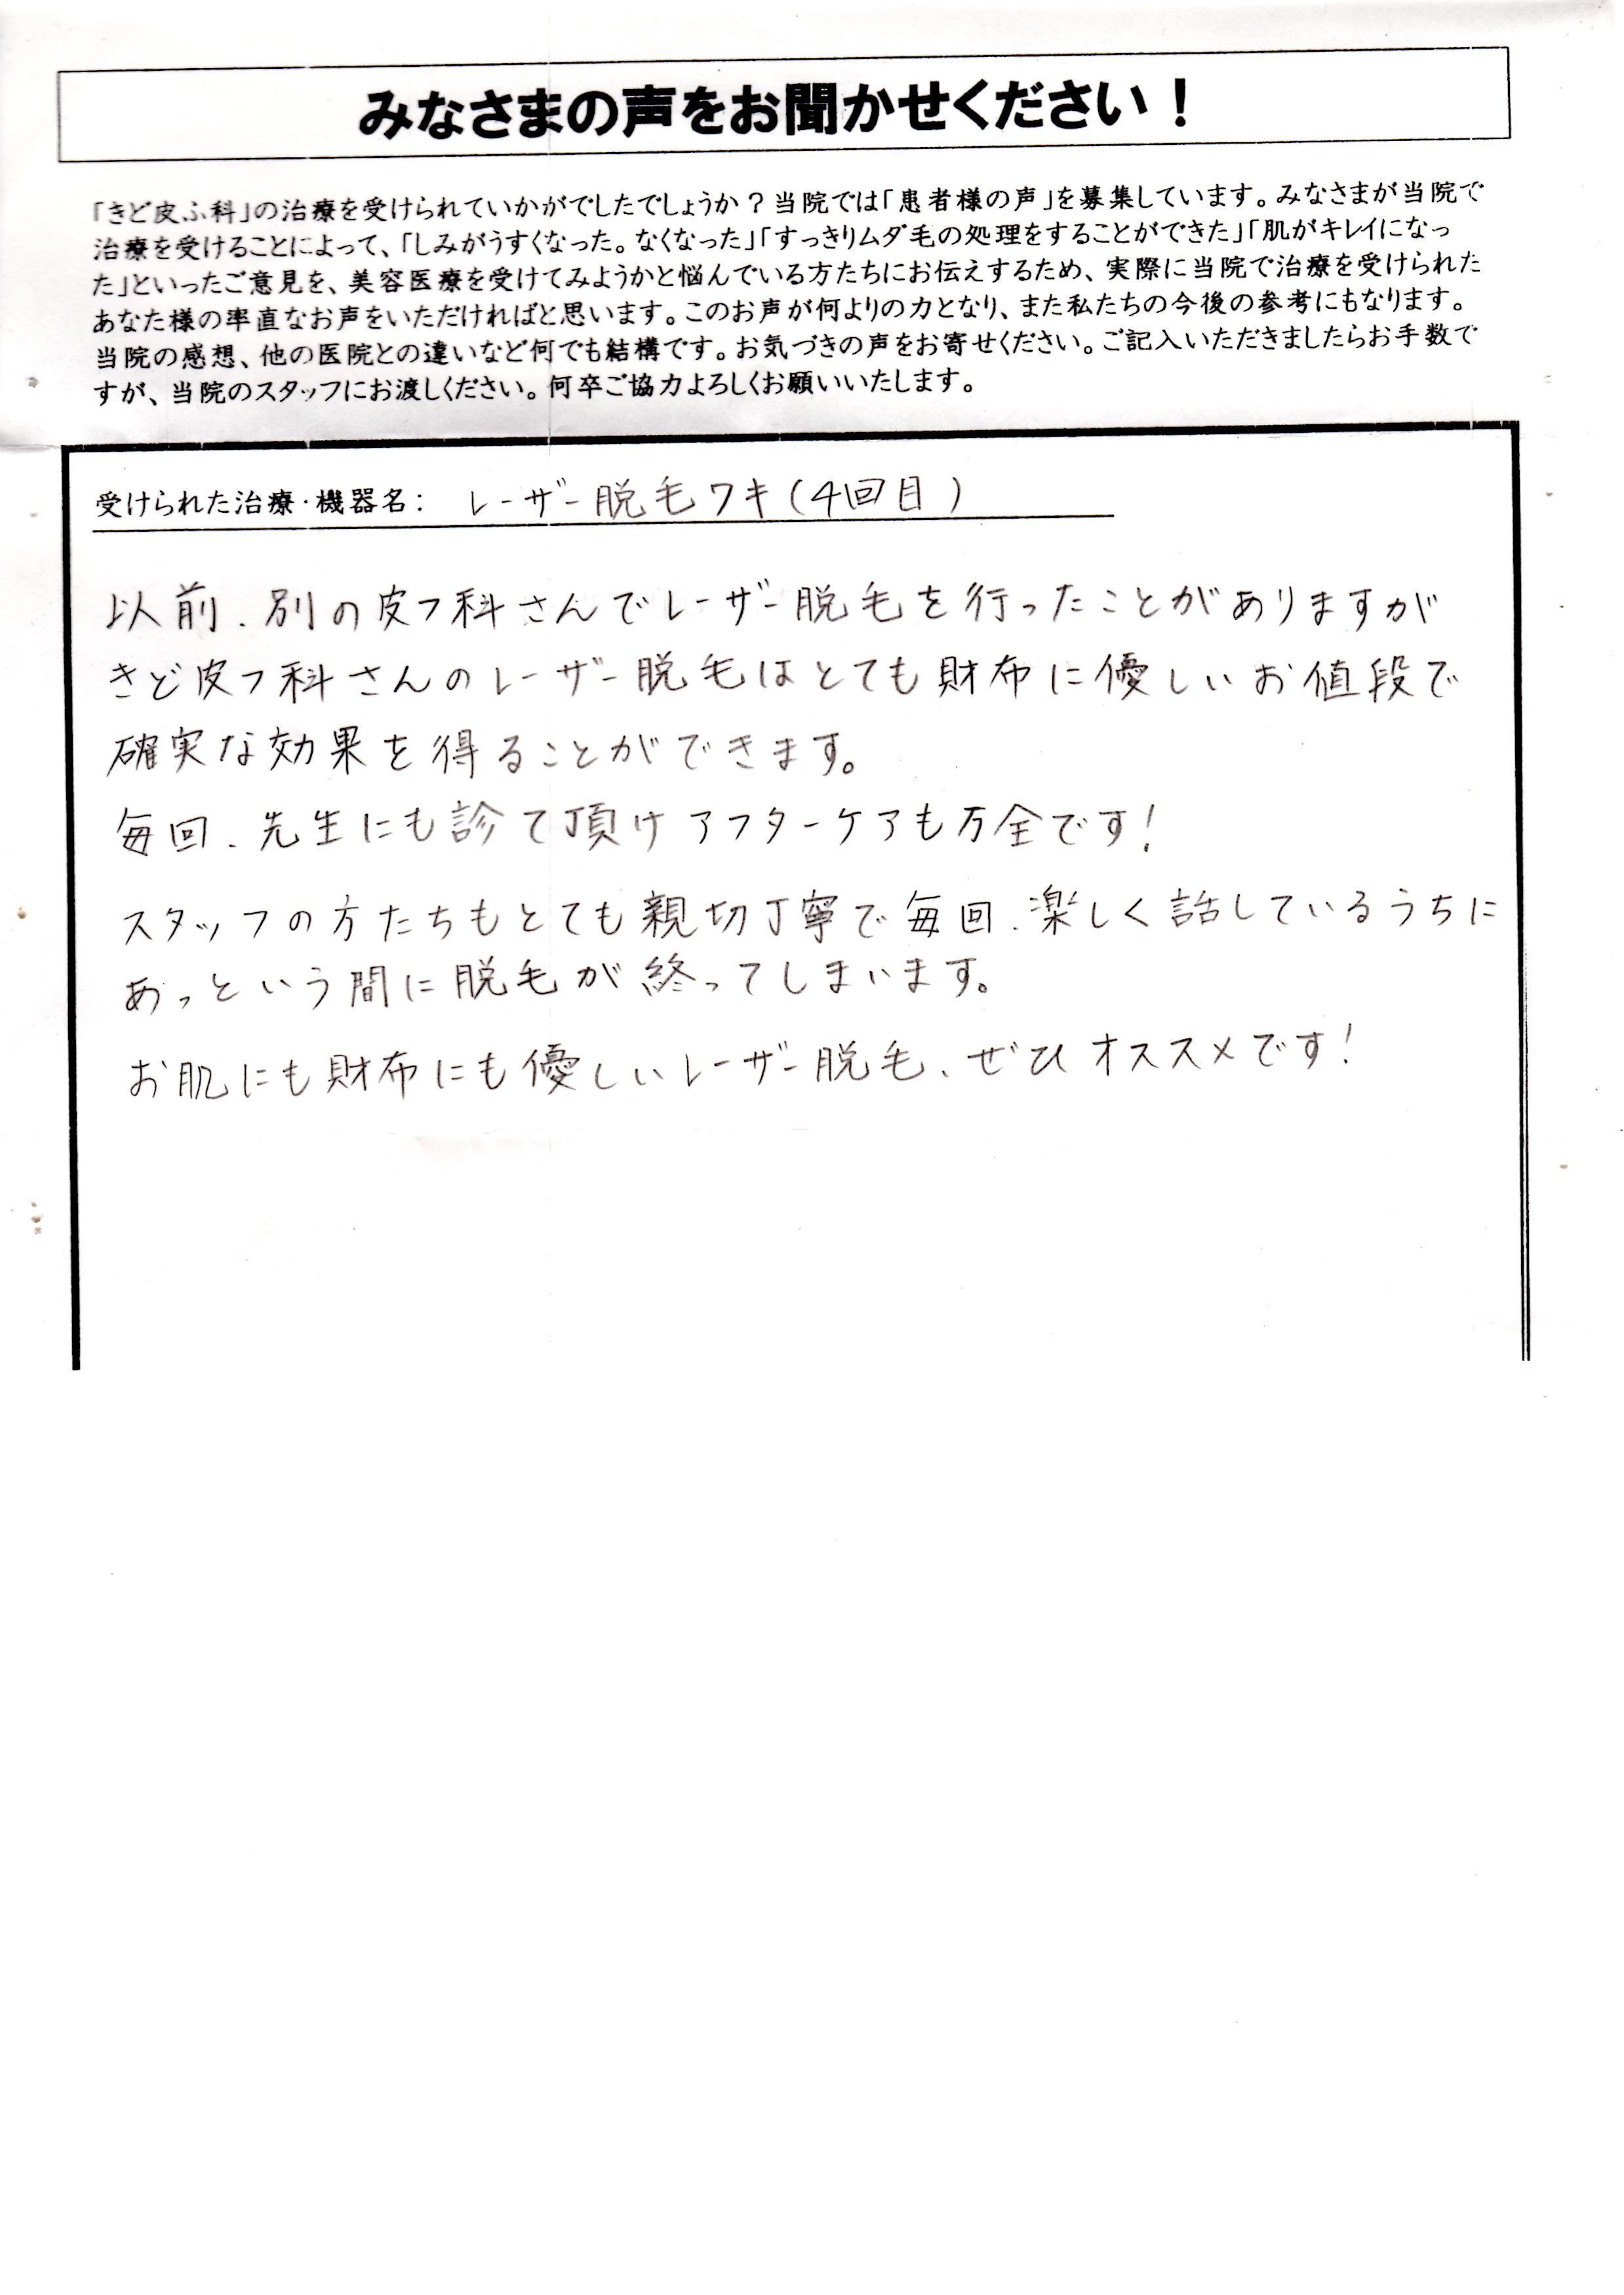 みなさまの声をお聞かせください！
「きど皮ふ科」の治療を受けられていかがでしたでしょうか？当院では「患者様の声」を募集しています。みなさまが当院で
治療を受けることによって、「しみがうすくなった。なくなった」「すっきりムダ毛の処理をすることができた」「肌がキレイになっ
た」といったご意見を、美容医療を受けてみようかと悩んでいる方たちにお伝えするため、実際に当院で治療を受けられた
あなた様の率直なお声をいただければと思います。このお声が何よりの力となり、また私たちの今後の参考にもなります。
当院の感想、他の医院との違いなど何でも結構です。お気づきの声をお寄せください。ご記入いただきましたらお手数で
すが、当院のスタッフにお渡しください。何卒ご協力よろしくお願いいたします。
受けられた治療・機器名： レーザー脱毛ワキ（4回目）
以前、別の皮フ科さんでレーザー脱毛を行ったことがありますが
きど皮フ科さんのレーザー脱毛はとても財布に優しいお値段で
確実な効果を得ることができます。
毎回、先生にも診て頂けアフターケアも万全です！
スタッフの方たちもとても親切丁寧で毎回、楽しく話しているうちに
あっという間に脱毛が終ってしまいます。
お肌にも財布にも優しいレーザー脱毛、ぜひオススメです！